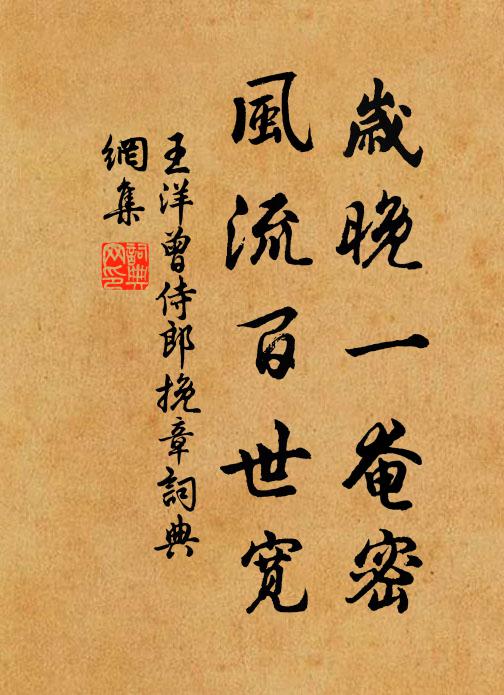 歲晚一奄密
風流百世寬
王洋曾侍郎挽章詞典
網集
詞典
网